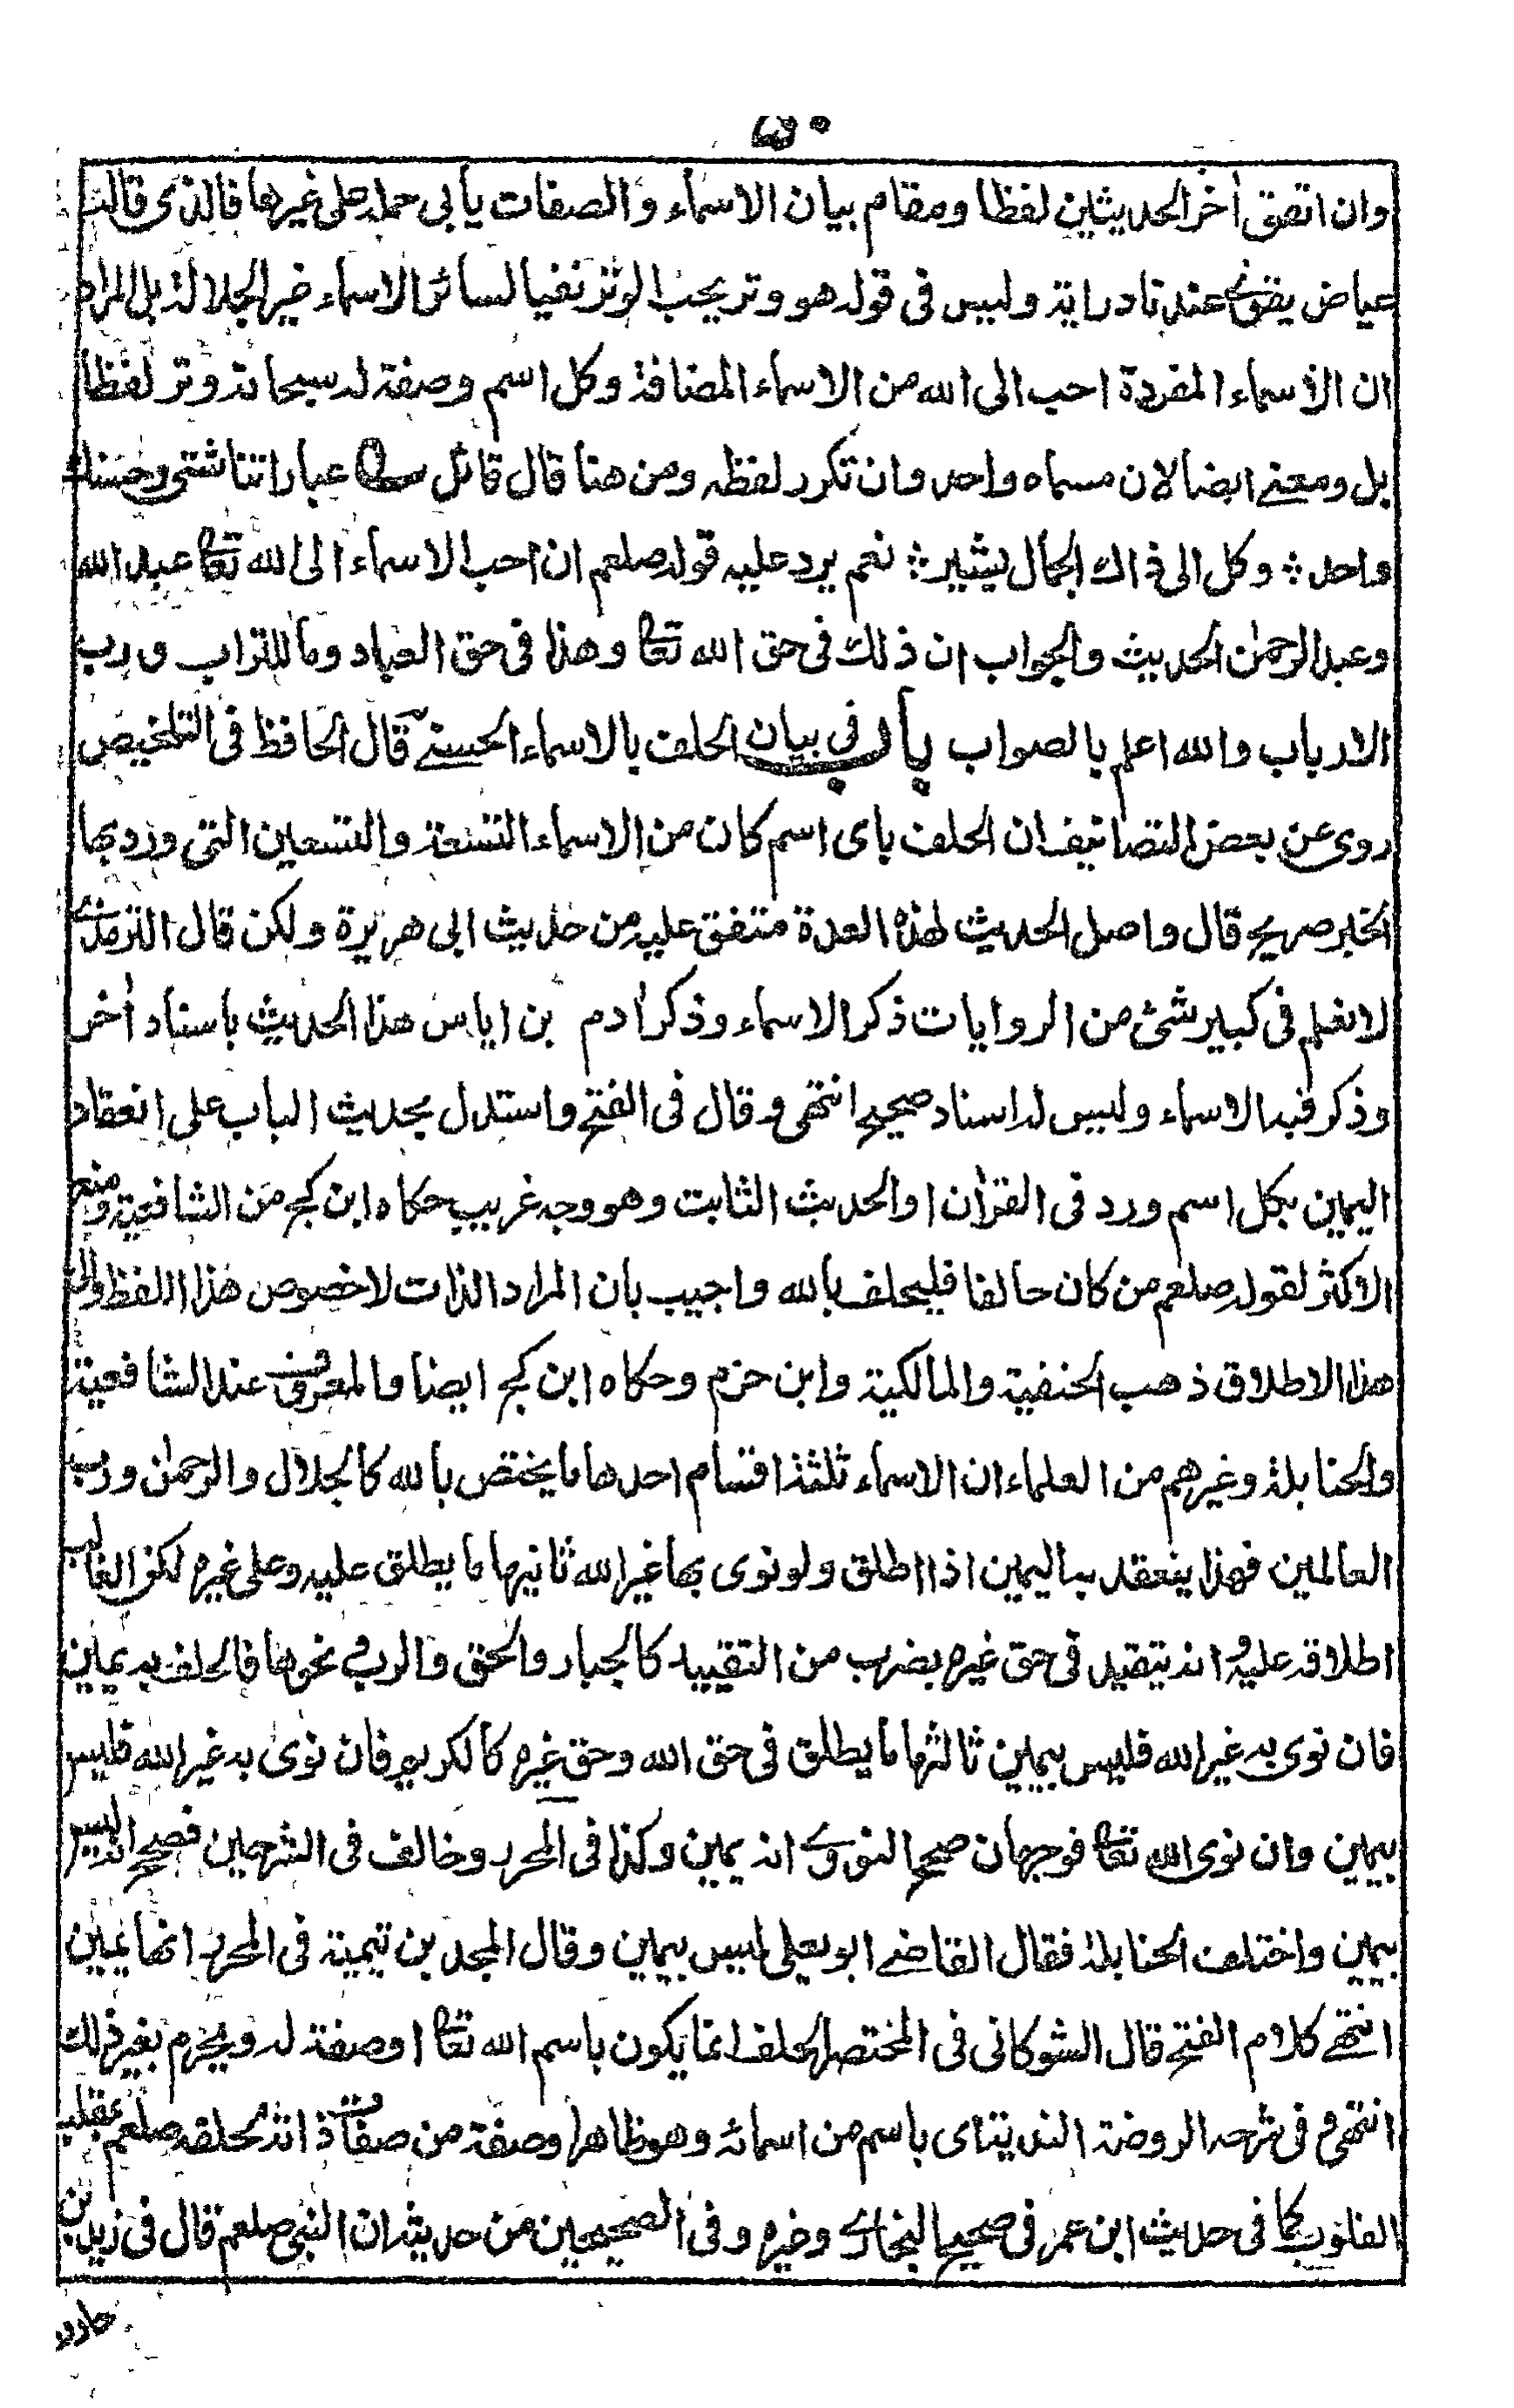 ٥٠
وان اتفق اٰخر الحديثين لفظا ومقام بيان الاسماء والصفات يأبى حمله على غيرها فالذى قاله
عياض يقوى عند نادرايته وليس فى قوله هو وتر يحب الوتر نفيا لسائر الاسماء غير الجلالة بل المراد
ان الاسماء المفردة احب الى الله من الاسماء المضافة وكل اسم وصفة له سبحانه وتر لفظا
بل ومعنے ايضا لان مسماه واحد وان تكرر لفظه ومن هنا قال قائل عباراتنا شتى وحسنك
واحد ؞ وكل الى ذاك الجمال يشير ؞ نعم يرد عليه قوله صلعم ان احب الاسماء الى الله تعا عبد الله
وعبد الرحمٰن الحديث والجواب ان ذلك فى حق الله تعا وهذا فى حق العباد وما للتراب ورب
الارباب والله اعلم بالصواب باب فى بيان الحلف بالاسماء الحسنے قال الحافظ فى التلخيص
روى عن بعض التصانيف ان الحلف باى اسم كان من الاسماء التسعة والتسعين التى ورد بها
الخبر صريح قال واصل الحديث لهذه العدة متفق عليه من حديث ابى هريرة ولكن قال الترمذے
لا نعلم فى كبير شئ من الروايات ذكر الاسماء وذكر اٰدم بن اياس هذا الحديث باسناد اٰخر
وذكر فيه الاسماء وليس له اسناد صحيح انتهى وقال فى الفتح واستدل بحديث الباب على انعقاد
اليمين بكل اسم ورد فى القراٰن او الحديث الثابت وهو وجه غريب حكاه ابن كج من الشافعية ومنع
الاكثر لقوله صلعم من كان حالفا فليحلف بالله واجيب بان المراد الذات لا خصوص هذا اللفظ والى
هذا الاطلاق ذهب الحنفية والمالكية وابن حزم وحكاه ابن كج ايضا والمعروف عند الشافعية
والحنابلة وغيرهم من العلماء ان الاسماء ثلثة اقسام احدها ما يختص بالله كالجلال والرحمٰن ورب
العالمين فهذا ينعقد به اليمين اذا اطلق ولو نوى بها غير الله ثانيها ما يطلق عليه وعلى غيره لكن الغالب
اطلاقه عليه وانه يتقيد فى حق غيره بضرب من التقييد كالجبار والحق والرب ونحوها فالحلف به يمين
فان نوى به غير الله فليس بيمين ثالثها ما يطلق فى حق الله وحق غيره كالكريم فان نوى به غير الله فليس
بيمين وان نوى الله تعا فوجهان صحح النووے انه يمين وكذا فى المحرر وخالف فى الشرحين فصحح انه ليس
بيمين واختلف الحنابلة فقال القاضے ابو يعلى ليس بيمين وقال المجد بن تيمية فى المحرر انها يمين
انتهے كلام الفتح قال الشوكانى فى المختصر الحلف انما يكون باسم الله تعا او صفة له ويحرم بغير ذلك
انتهى و فى شرحه الروضة الندية اى باسم من اسمائه وهو ظاهر او صفة من صفات ذاته لحلفه صلعم بمقلب
القلوب كما فى حديث ابن عمر فى صحيح البخارے وغيره وفى الصحيحين من حديثه ان النبى صلعم قال فى زيد بن
حارثة